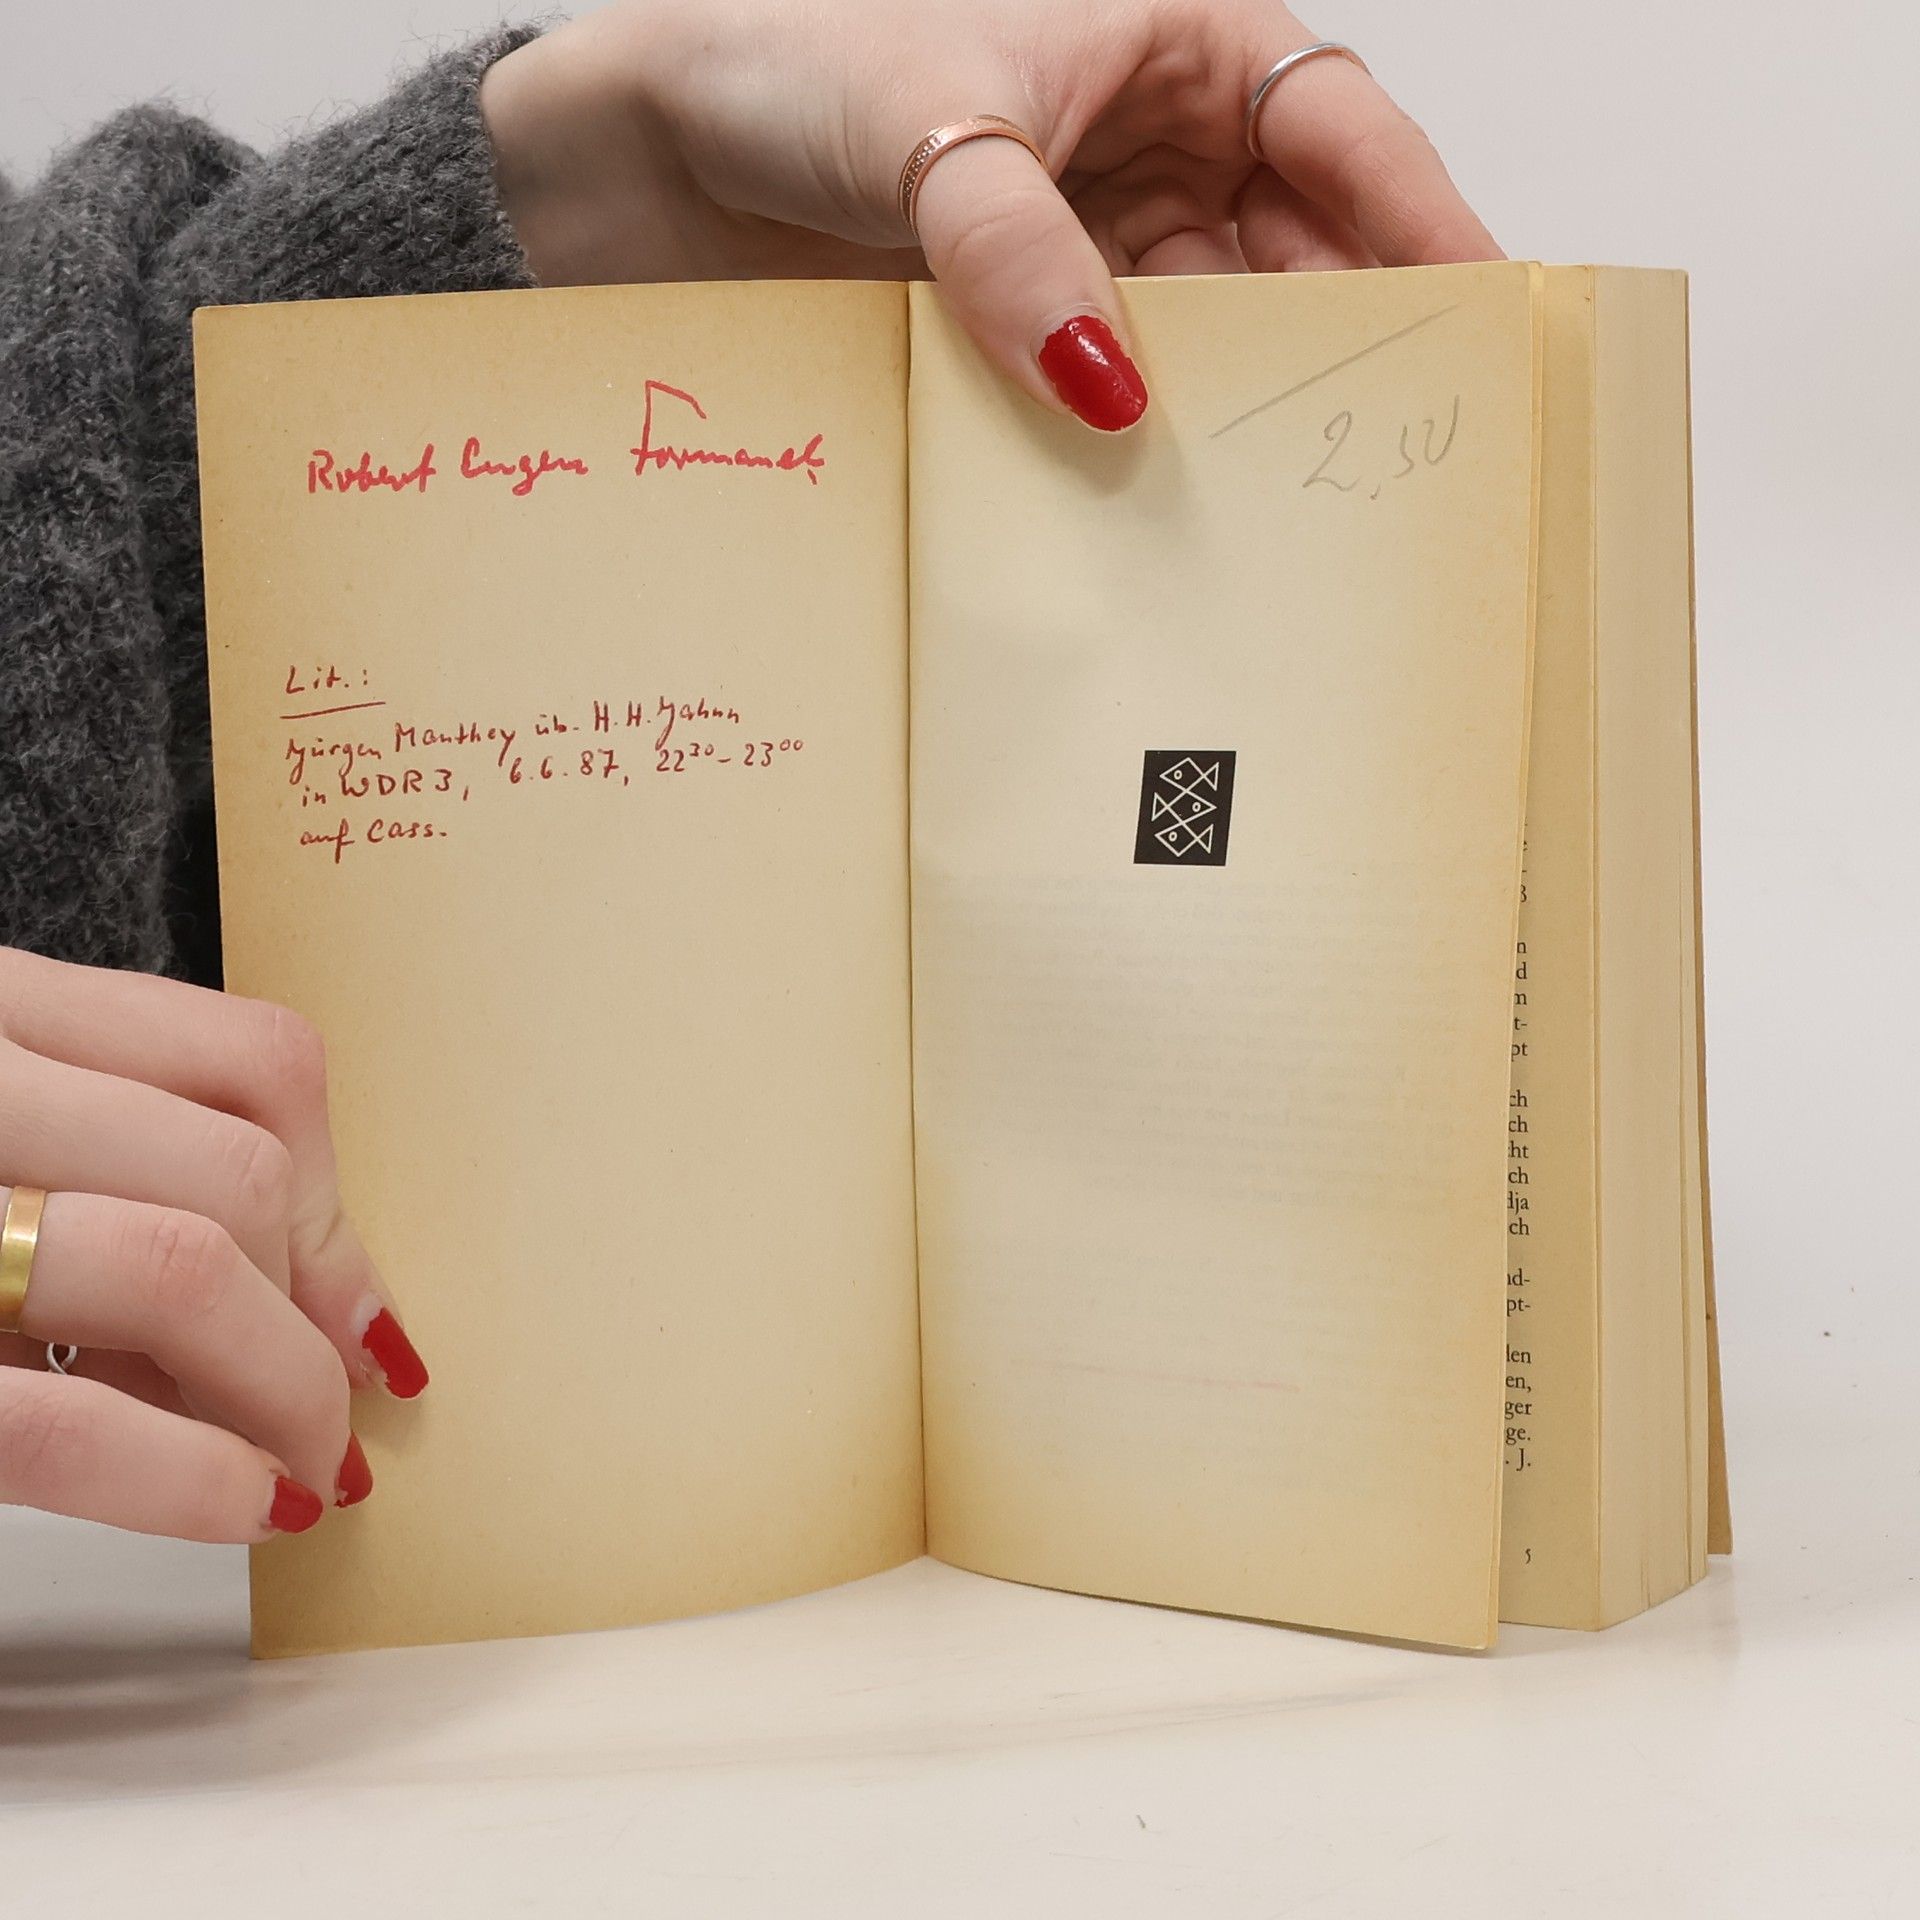 Robert Eugen Formanek
Lit.:
Jürgen Manthey üb. H. H. Jahnn
in WDR 3, 6.6.87, 22³⁰ - 23⁰⁰
auf Cass.
2,50
n
d
m
t-
pt
ch
ch
cht
ch
dja
ch
nd-
pt-
den
en,
ger
ge.
. J.
5